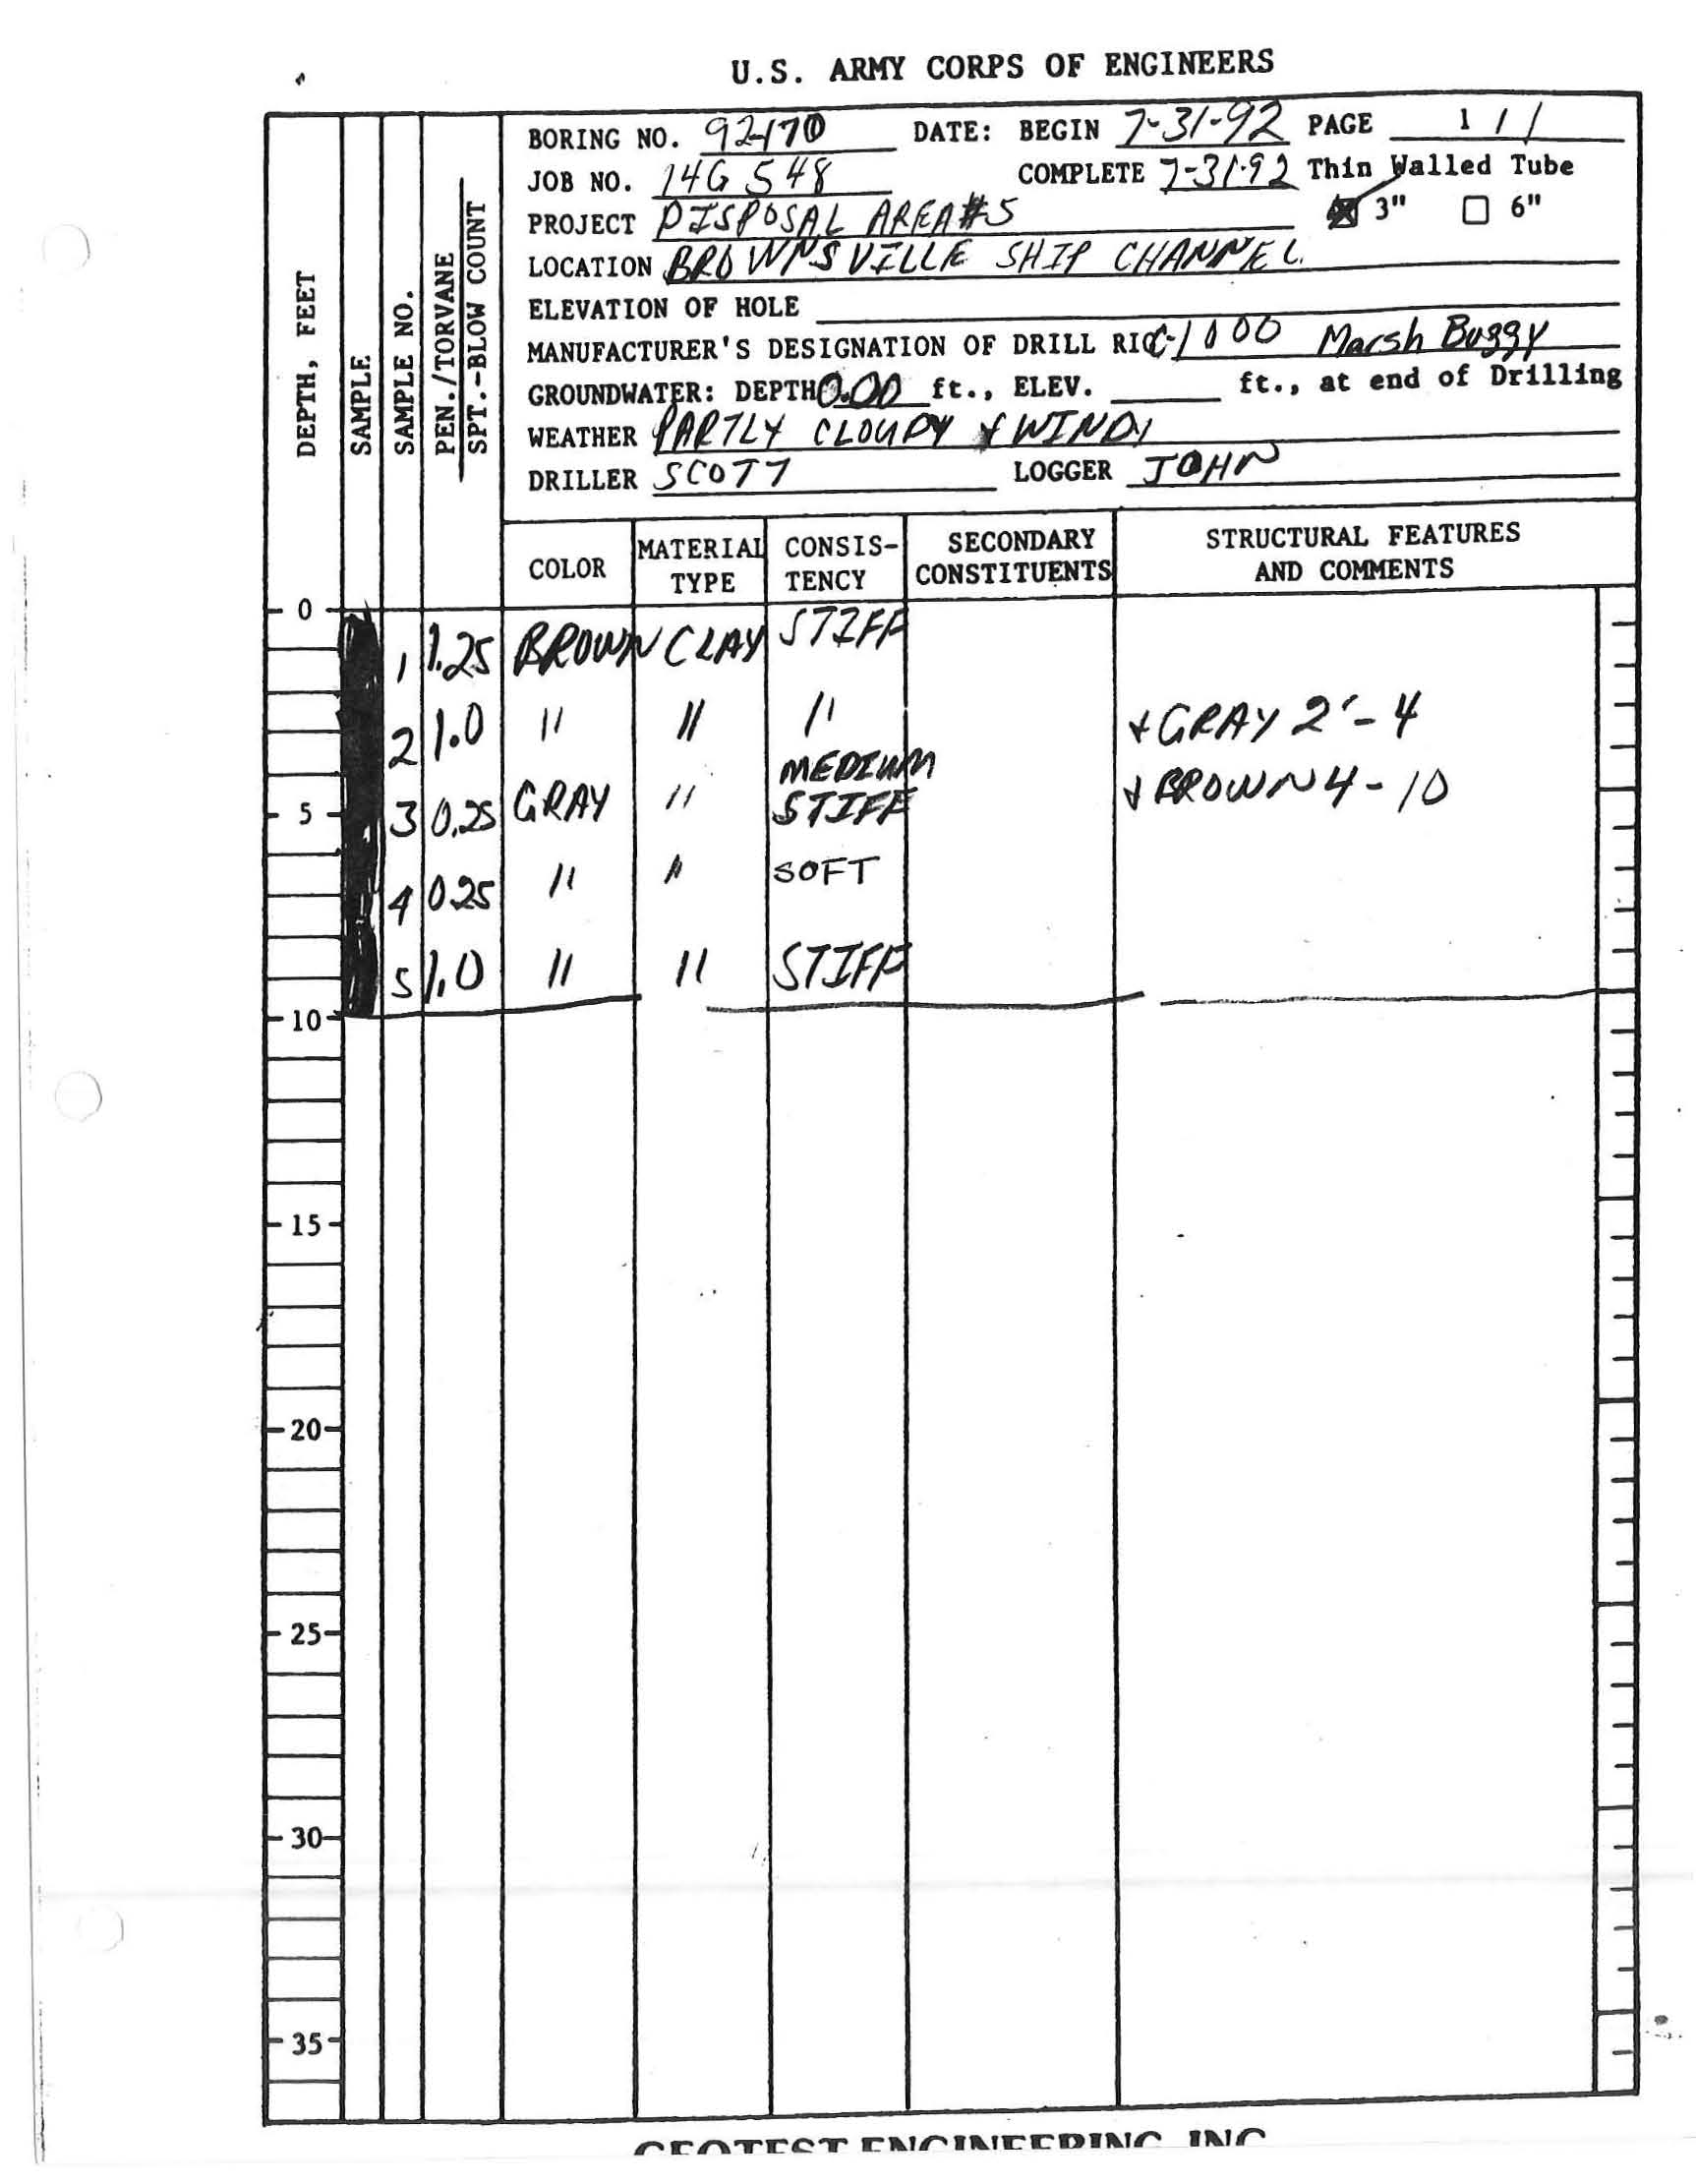 U.S. ARMY CORPS OF ENGINEERS
BORING NO. 92-170 DATE: BEGIN 7-31-92 PAGE 1 / 1
JOB NO. 14G548 COMPLETE 7-31-92 Thin Walled Tube
PROJECT DISPOSAL AREA #5 3" 6"
LOCATION BROWNSVILLE SHIP CHANNEL
ELEVATION OF HOLE
MANUFACTURER'S DESIGNATION OF DRILL RIG C-1000 Marsh Buggy
GROUNDWATER: DEPTH 0.00 ft., ELEV. ft., at end of Drilling
WEATHER PARTLY CLOUDY & WINDY
DRILLER SCOTT LOGGER JOHN
DEPTH, FEET
SAMPLE
SAMPLE NO.
PEN./TORVANE
SPT.-BLOW COUNT
COLOR MATERIAL TYPE CONSIS-TENCY SECONDARY CONSTITUENTS STRUCTURAL FEATURES AND COMMENTS
0
1 1.25 BROWN CLAY STIFF
2 1.0 " " " & GRAY 2'-4
5 3 0.25 GRAY " MEDIUM STIFF & BROWN 4-10
4 0.25 " " SOFT
5 1.0 " " STIFF
10
15
20
25
30
35
GEOTEST ENGINEERING, INC